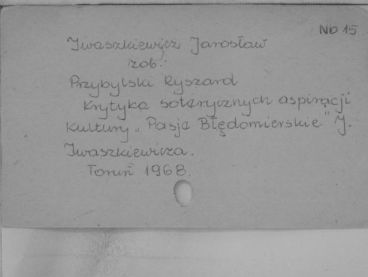 ND 15
Iwaszkiewicz Jarosław
zob.:
Przybylski Ryszard
Krytyka soterycznych aspiracji
kultury „Pasje Błędomierskie" J.
Iwaszkiewicza.
Toruń 1968.